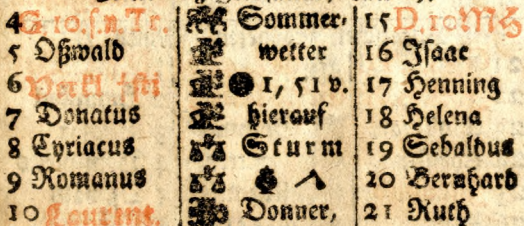 4 G 10. S. n. Tr. Sommer- 15 D. 10
5 Oßwald wetter 16 Isaac
6 Verkl. 1, 51 v. 17 Henning
7 Donatus hierauf 18 Helena
8 Cyriacus Sturm 19 Sebaldus
9 Romanus 20 Bernhard
10 Laurent. Donner, 21 Ruth